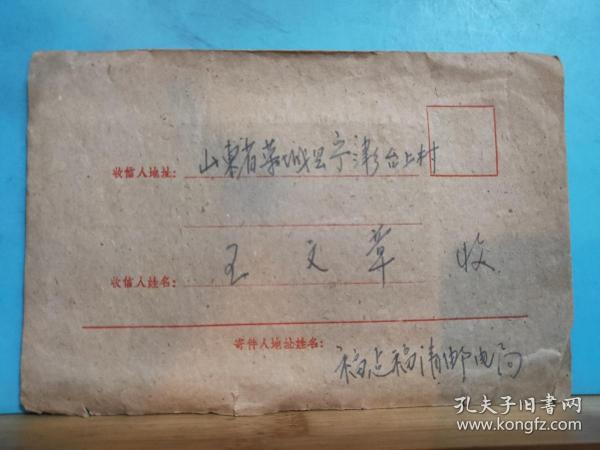 收信人地址： 山東省荣城县宁津乡台上村
收信人姓名： 王文章 收
寄件人地址姓名：
福建福清邮电局
孔夫子旧书网
www.kongfz.com